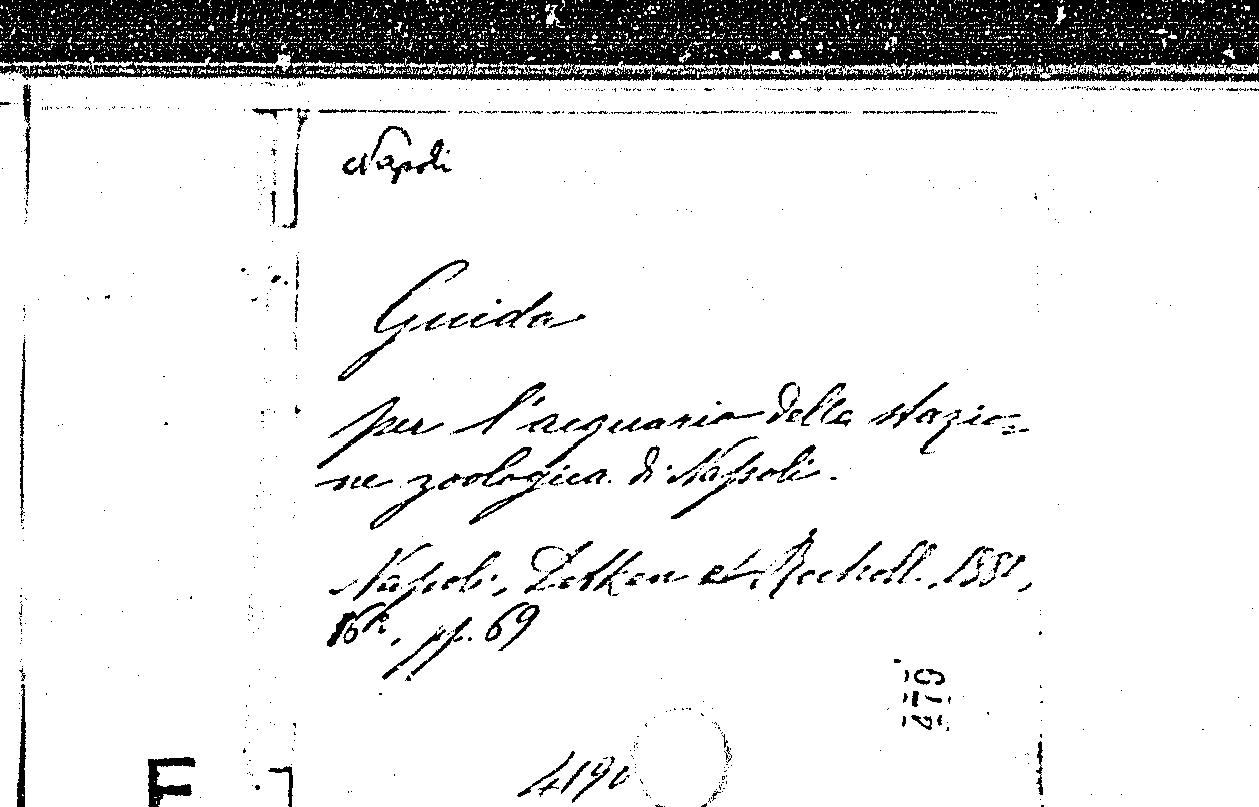 Napoli
Guida
per l'acquario della stazio=
ne zoologica di Napoli.
Napoli, Detken et Rocholl, 1881,
16°, pp. 69
479
4190
E